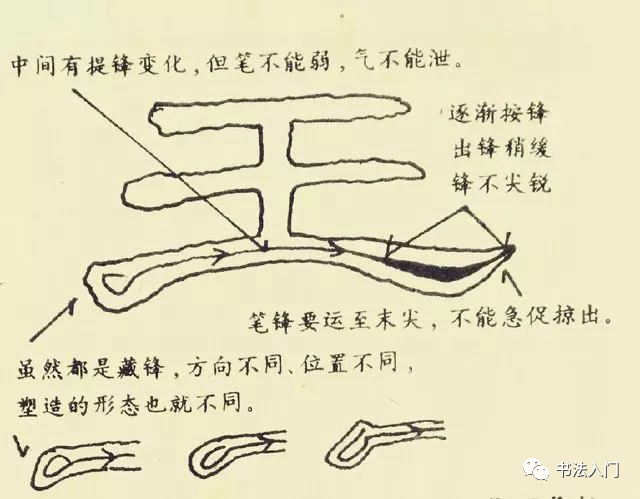 中间有提锋变化，但笔不能弱，气不能泄。
王
逐渐按锋
出锋稍缓
锋不尖锐
笔锋要运至末尖，不能急促掠出。
虽然都是藏锋，方向不同、位置不同，
塑造的形态也就不同。
书法入门